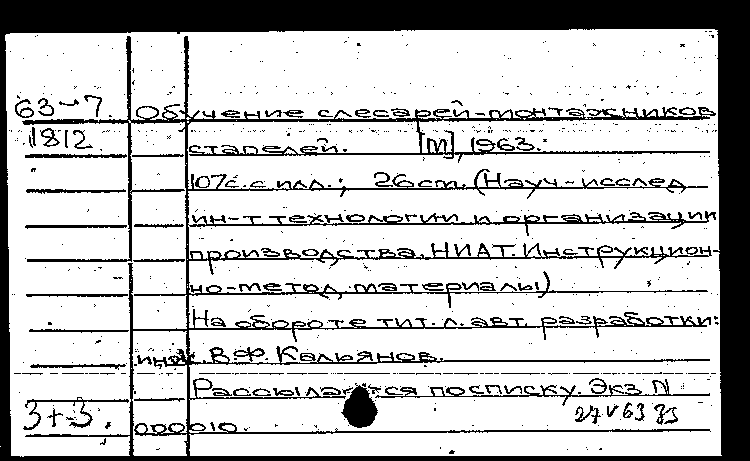 63-7. Обучение слесарей-монтажников
1812 стапелей. [М], 1963.
107с. с илл.; 26 см. (Науч-исслед
ин-т технологии и организации
производства. НИАТ. Инструкцион-
но-метод. материалы)
На обороте тит. л. авт. разработки:
инж. В.Ф. Кальянов.
Рассылается по списку. Экз N
3+3. 000010. 27 V 63